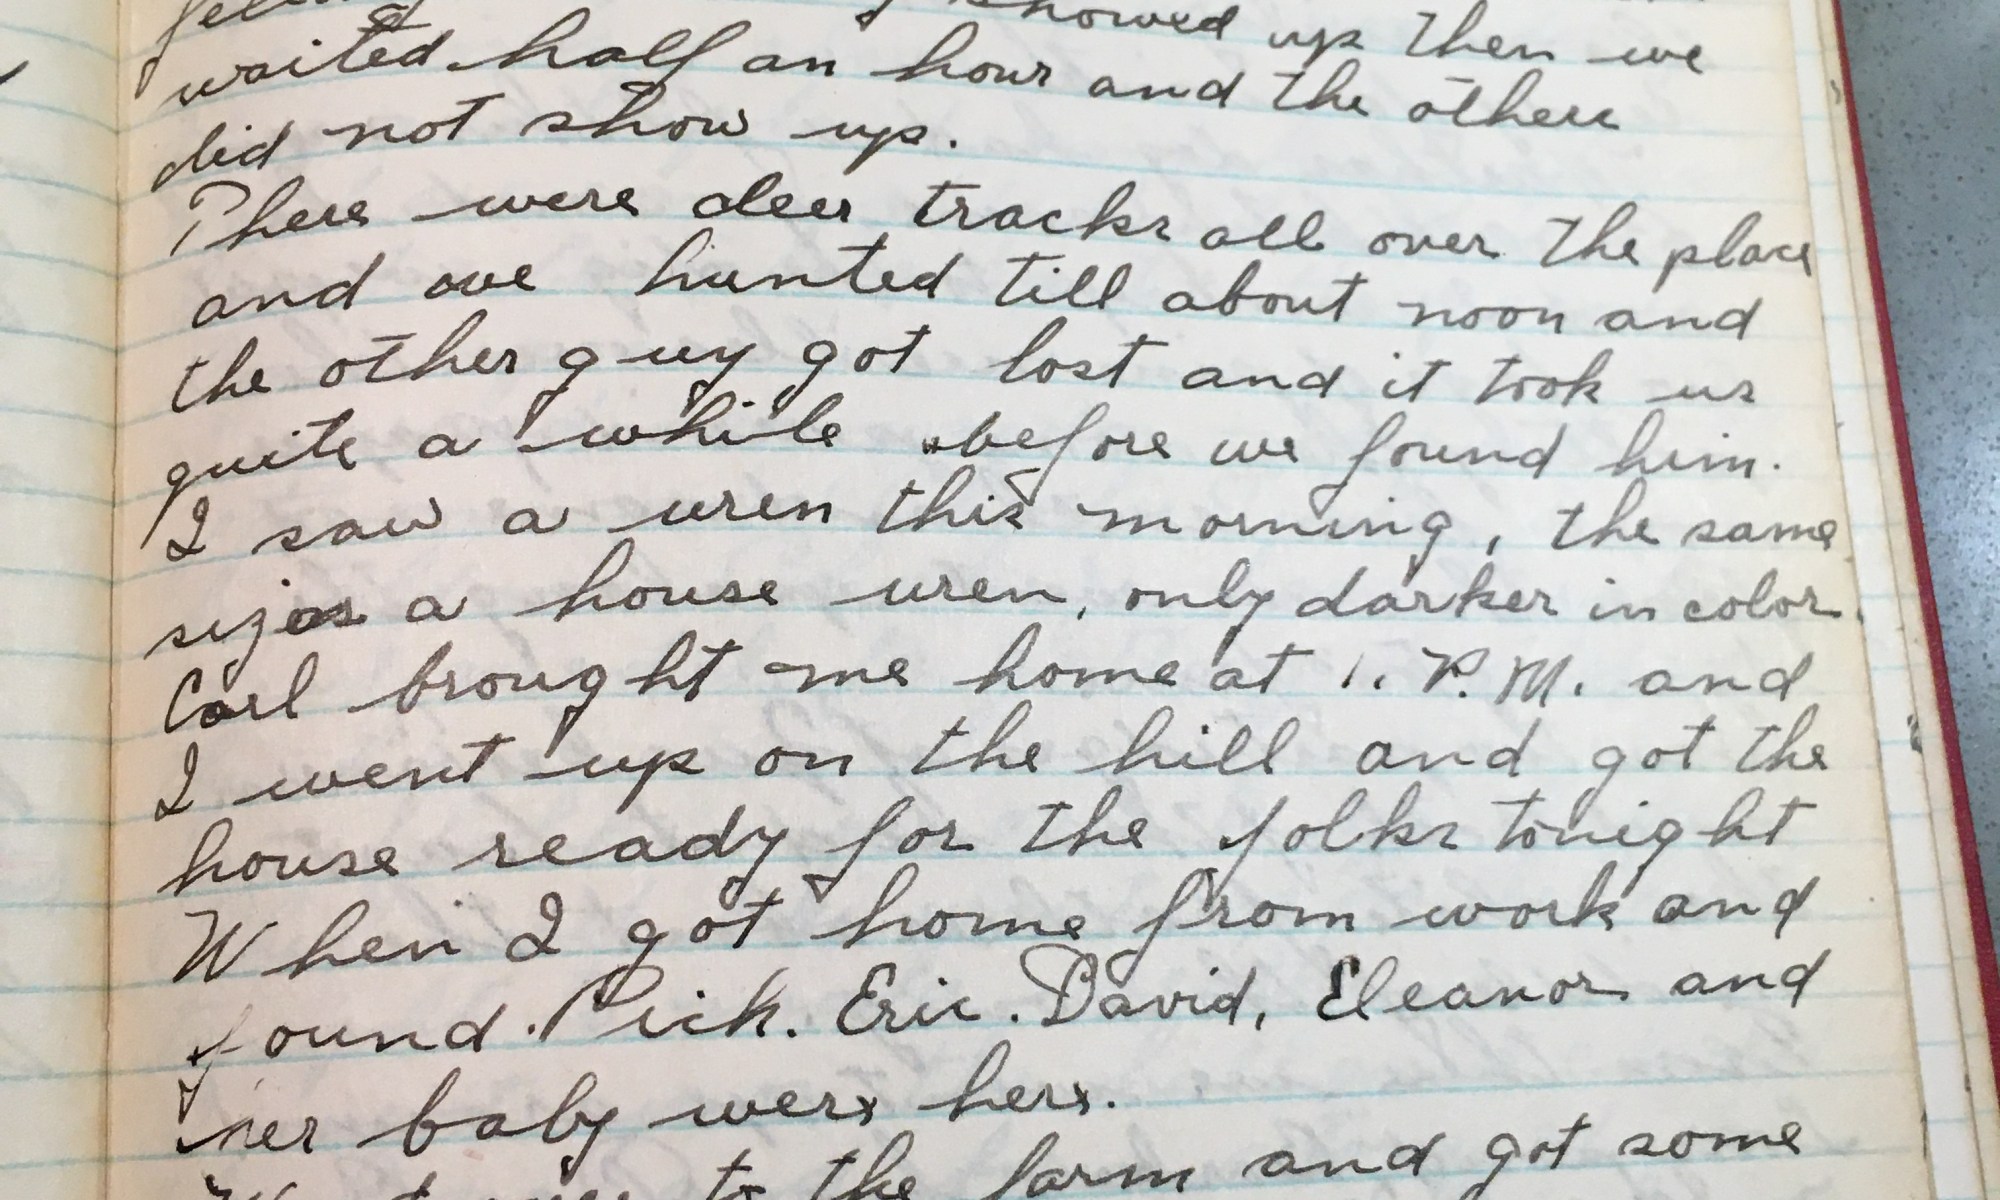 showed up then we
waited half an hour and the others
did not show up.
There were deer tracks all over the place
and we hunted till about noon and
the other guy got lost and it took us
quite a while before we found him.
I saw a wren this morning, the same
size as a house wren, only darker in color.
Carl brought me home at 1. P.M. and
I went up on the hill and got the
house ready for the folks tonight
When I got home from work and
found Pick. Eric. David, Eleanor and
her baby were here.
to the farm and got some